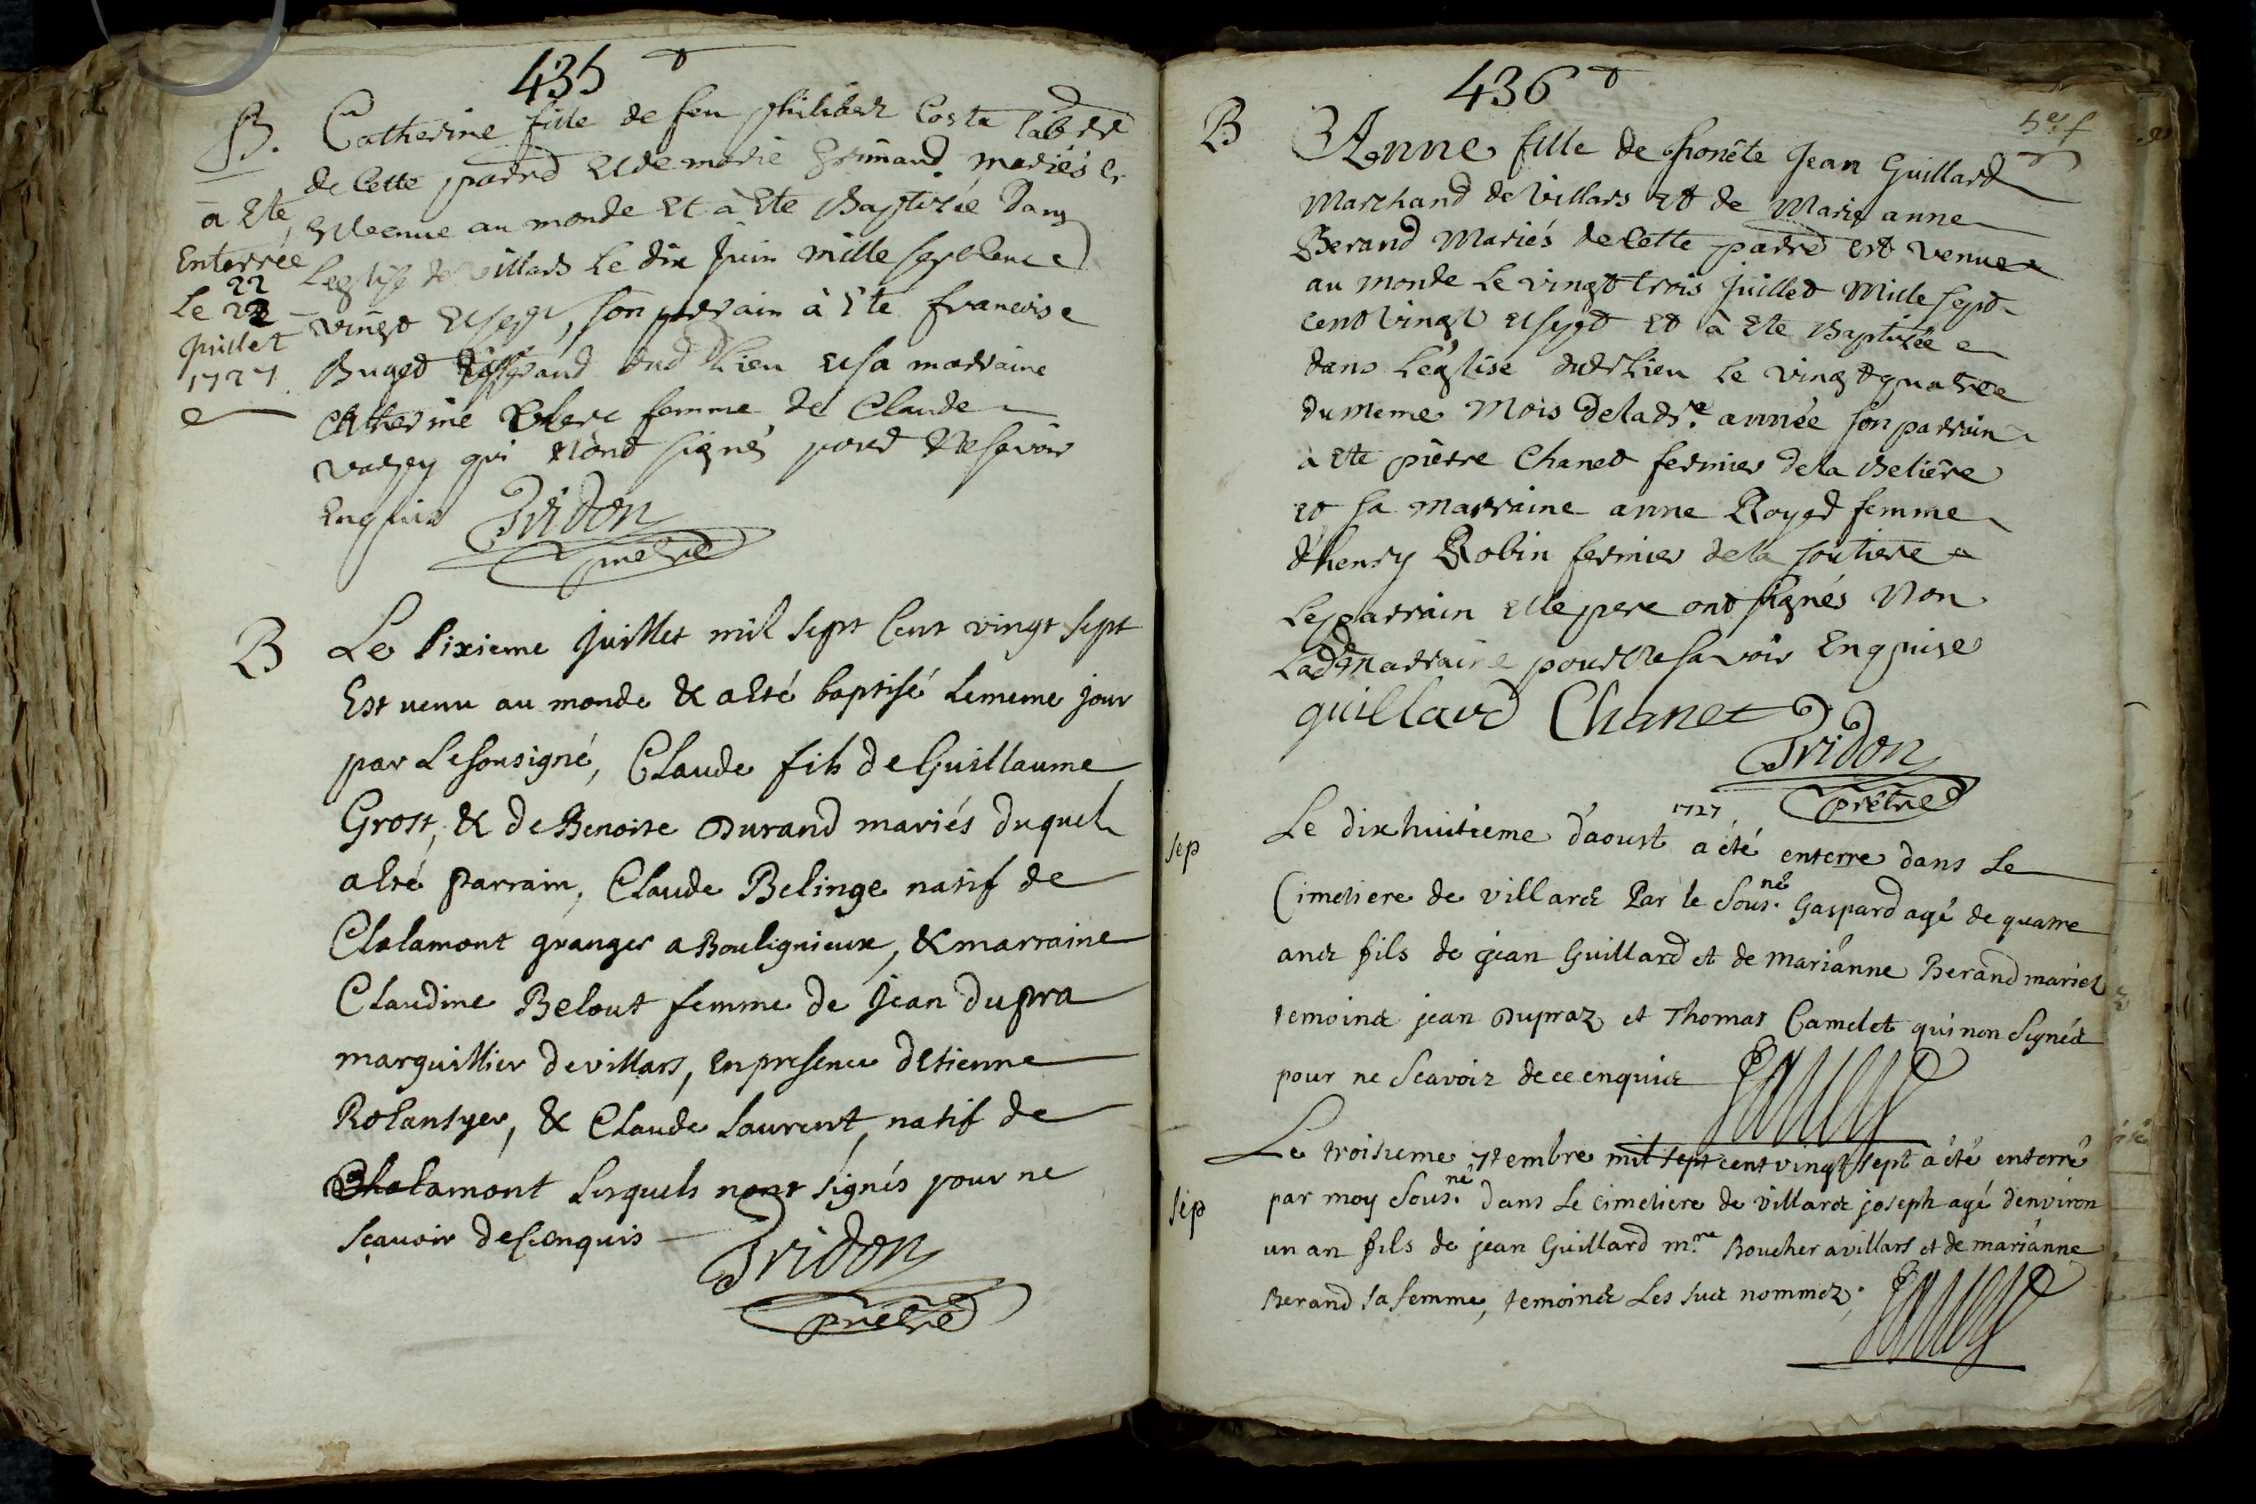 435
B. Catherine fille de feu philibert Coste labdr
de Cette parr et de marie Grimaud mariés
Est venue au monde Et à Ete Baptizée Dans
Leglise de villars Le dix Juin mille sept Cent
vingt Et sept, son parrain à Ete francois
Buget dud Lieu et sa marraine
Catherine Clerc femme de Claude
qui n'ont signés pour Ne savoir
Enquis Tridon
prêtre
à Ete
Enterrée
22
Le 22
Juillet
1727
B Le Sixieme Juillet mil sept Cent vingt sept
Est venu au monde & a Eté baptisé Lememe jour
par Le sousigné, Claude fils de Guillaume
Grost, & de Benoite Durand mariés duquel
a Eté parrain, Claude Belinge natif de
Chalamont granger a Bouligneux, & marraine
Claudine Belout femme de Jean dupra
marguillier de villars, En presence d'Etienne
Rolantyer, & Claude Laurent, natif de
Chalamont Lesquels n'ont signés pour ne
sçavoir de ce enquis Tridon
prêtre
436
B Anne fille de honête Jean Guillard
Marchand de Villars et de Marie anne
Berand Mariés de Cette parr est venue
au monde Le vingt trois Juillet Mille sept
cent vingt et sept et à Ete Baptizée
dans L'église dud Lieu Le vingt quatre
du meme Mois de lad.e année son parrain
à Ete pierre Chanet fermier de la Belière
et sa marraine anne Royet femme
d'henry Robin fermier de la soutiere
Le parrain et le pere ont signés Non
Lad marraine pour Ne savoir Enquise
guillard Chanet Tridon
prêtre
sep Le dix huitieme d'aoust 1727 a été enterre dans Le
Cimetiere de villars Par le Sous.né Gaspard agé de quatre
ans fils de jean Guillard et de marianne Berand mariez
temoins jean Dupraz et Thomas Camelet qui non Signés
pour ne Scavoir de ce enquis
Le troisieme 7tembre mil sept cent vingt sept a été enterré
sep par moy Sous.né dans Le cimetiere de villars joseph agé denviron
un an fils de jean Guillard m.re Boucher a villars et de marianne
Berand sa femme, temoins Les sus nommez.